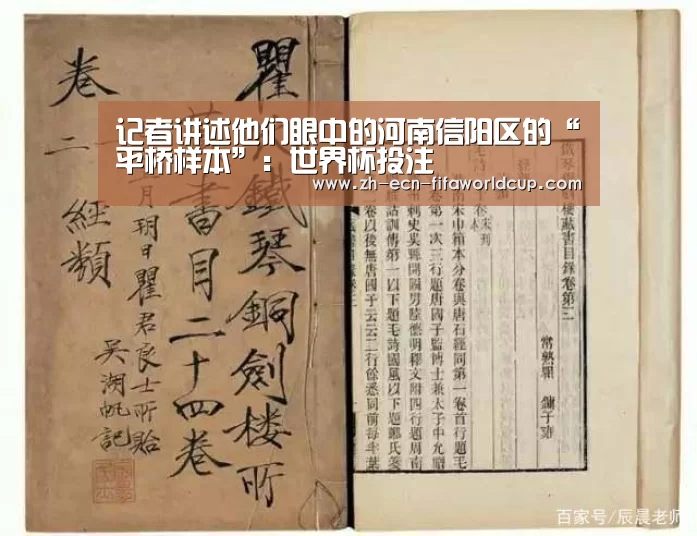 记者讲述他们眼中的河南信阳区的“
平桥样本”：世界杯投注
www.zh-ecn-fifaworldcup.com
瞿
鐵琴銅劍楼所
書目二十四卷
卷二 經類
月玥日瞿君良士所貽
吴湖帆記
藏書目錄卷第二
常熟瞿 鏞子雍
南宋巾箱本分卷與唐石經同第一卷首行題毛
卷第一次三行題唐國子監博士兼太子中允贈
刺史吳縣開國男陸德明釋文附四行題周南
詁訓傳第一以下題毛詩國風以下題鄭氏箋
卷以後無唐國子云云二行餘悉同前每半葉
百家号/辰晨老师